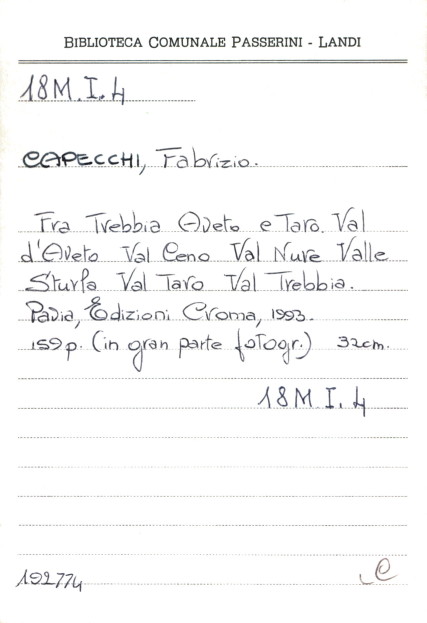 BIBLIOTECA COMUNALE PASSERINI - LANDI
18M.I.4
CAPECCHI, Fabrizio.
Fra Trebbia Aveto e Taro. Val
d'Aveto Val Ceno Val Nure Valle
Sturla Val Taro Val Trebbia.
Pavia, Edizioni Croma, 1993.
159 p. (in gran parte fotogr.) 32cm.
18M.I.4
192774
C